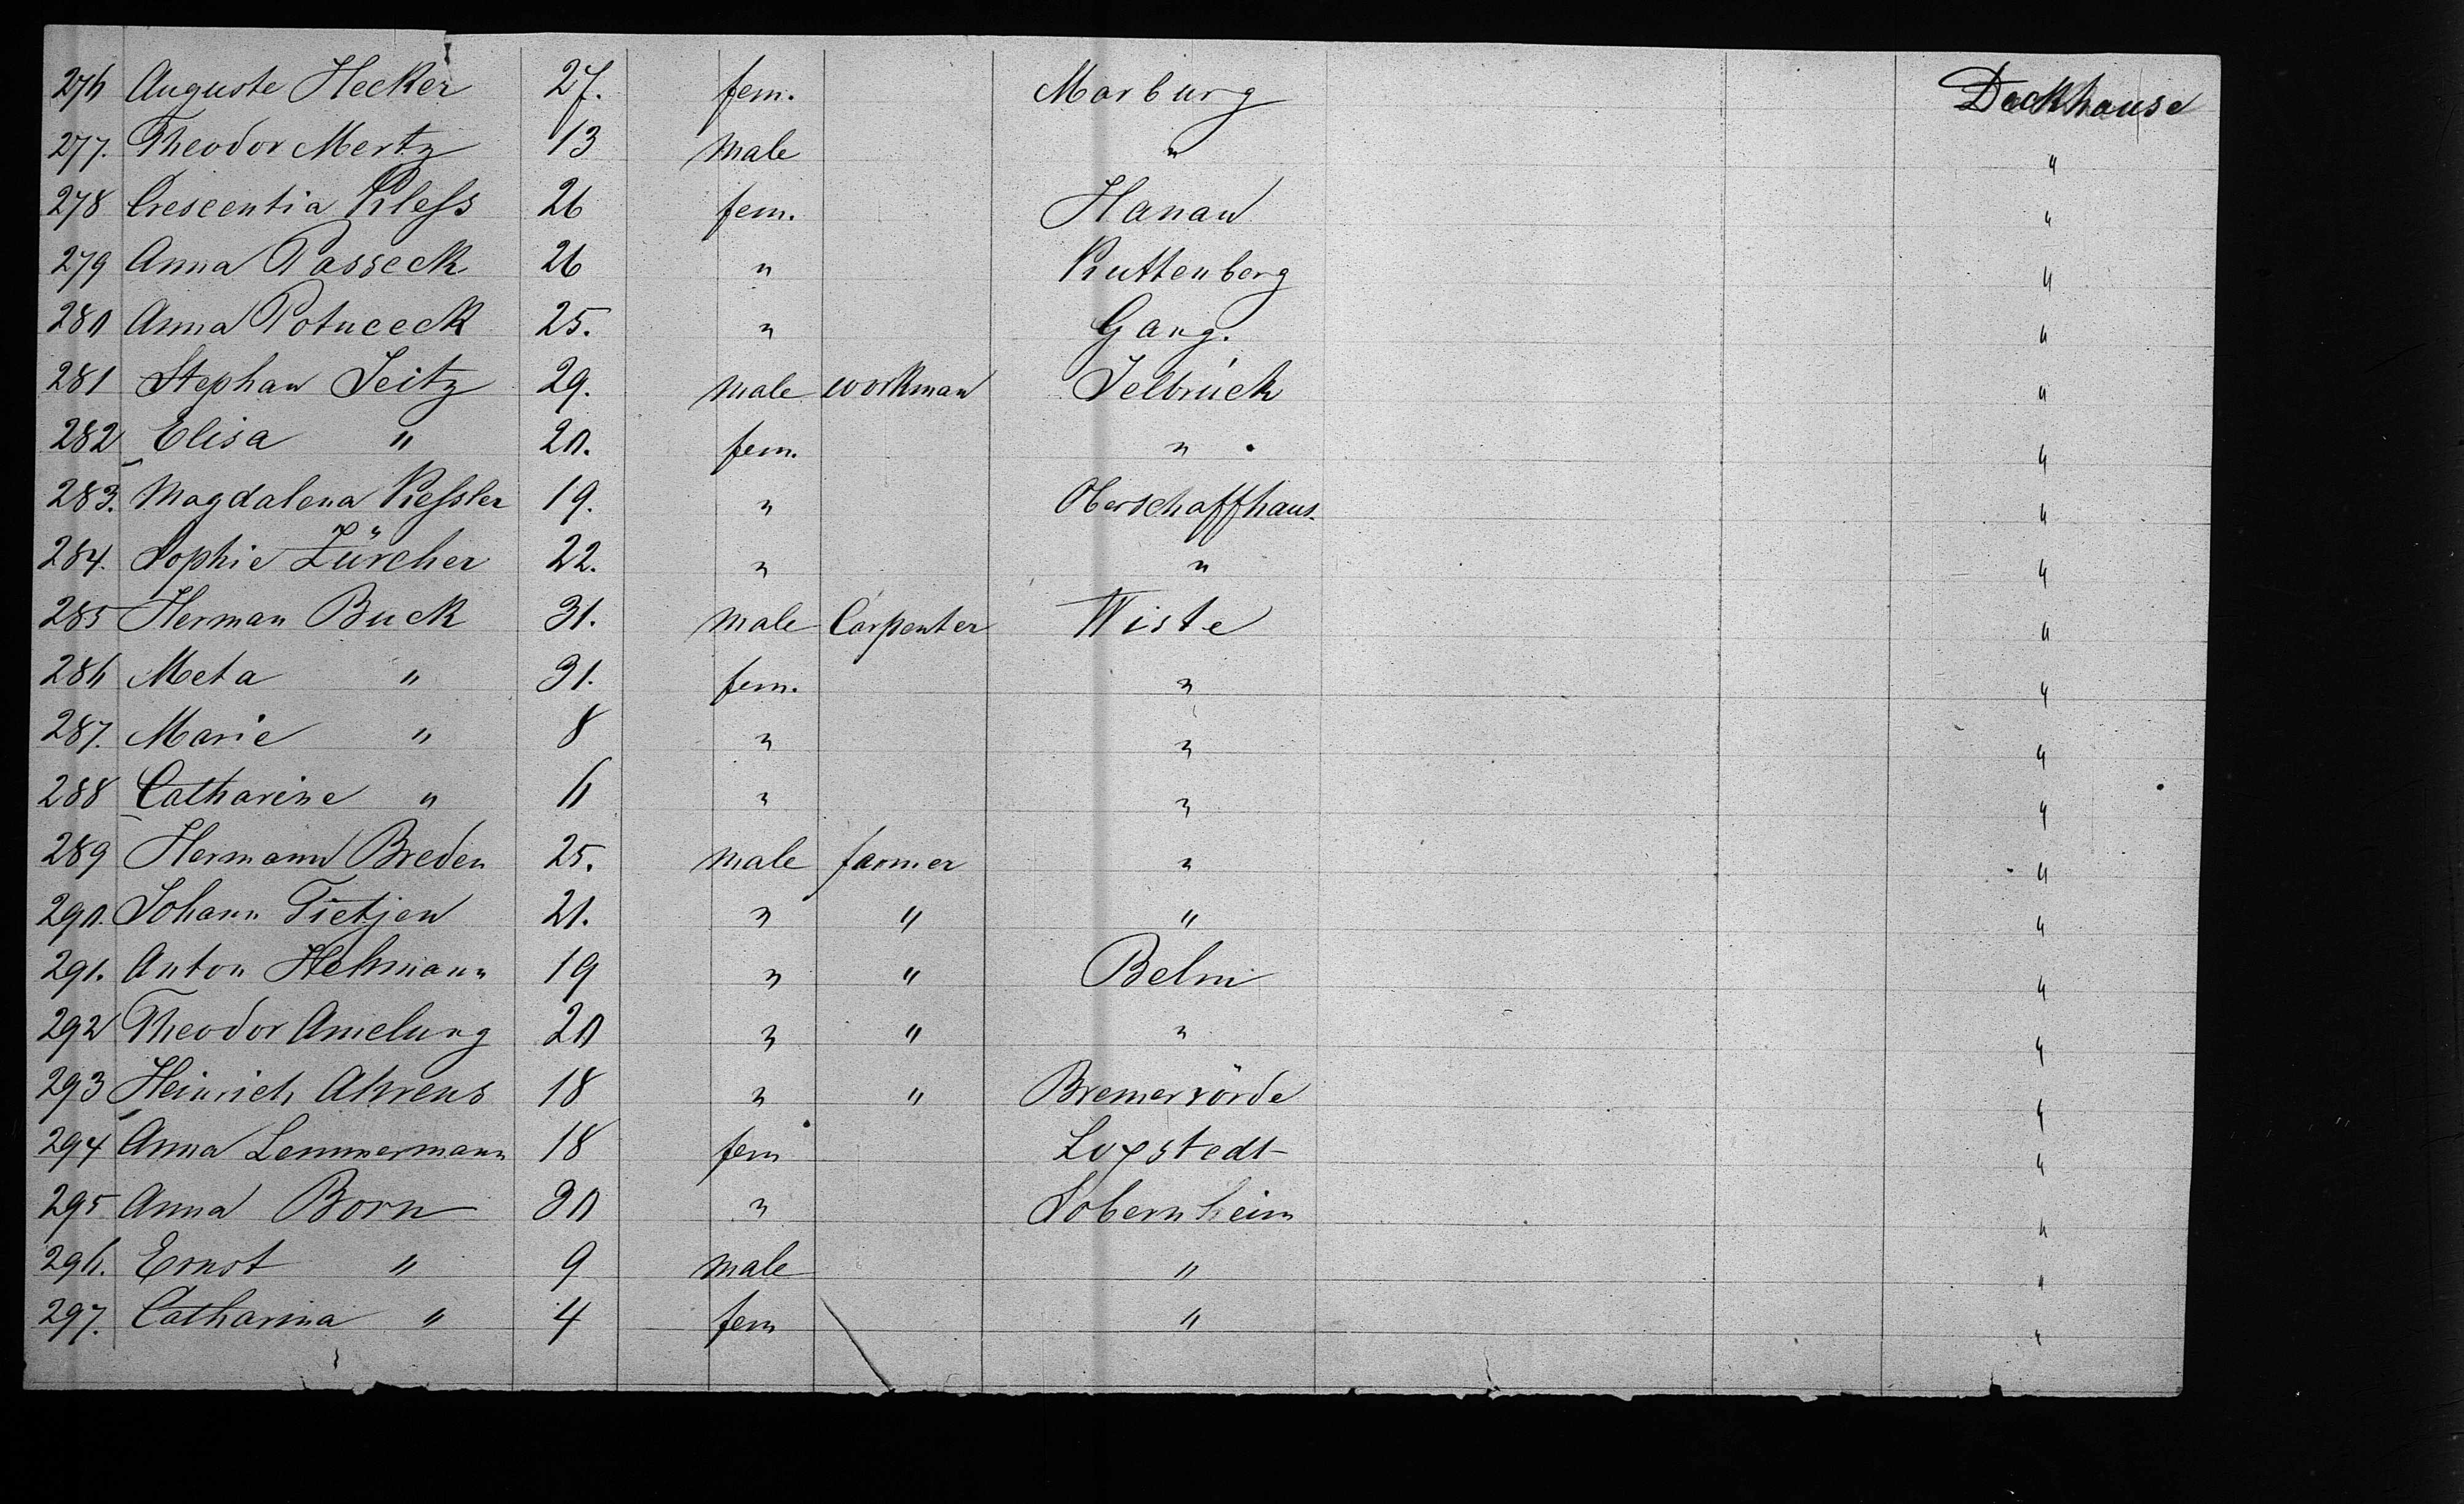 276 Auguste Hecker 27. fem. Marburg Deckhouse
277. Theodor Mertz 13 male " "
278 Crescentia Kleſs 26 fem. Hanau "
279 Anna Passeck 26 " Kuttenberg "
280 Anna Potuceck 25. " Gang. "
281 Stephan Seitz 29. male workman Selbrück "
282 Elisa " 20. fem. " "
283. Magdalena Keſsler 19. " Oberschaffhaus. "
284. Sophie Zürcher 22. " " "
285 Herman Buck 31. male Carpenter Wiste "
286 Meta " 31. fem. " "
287. Marie " 8 " " "
288 Catharine " 6 " " "
289 Hermann Breden 25. male farmer " "
290. Johann Tietjen 21. " " " "
291. Anton Helmann 19 " " Belm "
292 Theodor Amelung 20 " " " "
293 Heinrich Ahrens 18 " " Bremervörde "
294 Anna Lemmermann 18 fem Loxstedt "
295 Anna Born 30 " Sobernheim "
296. Ernst " 9 male " "
297. Catharina " 4 fem " "